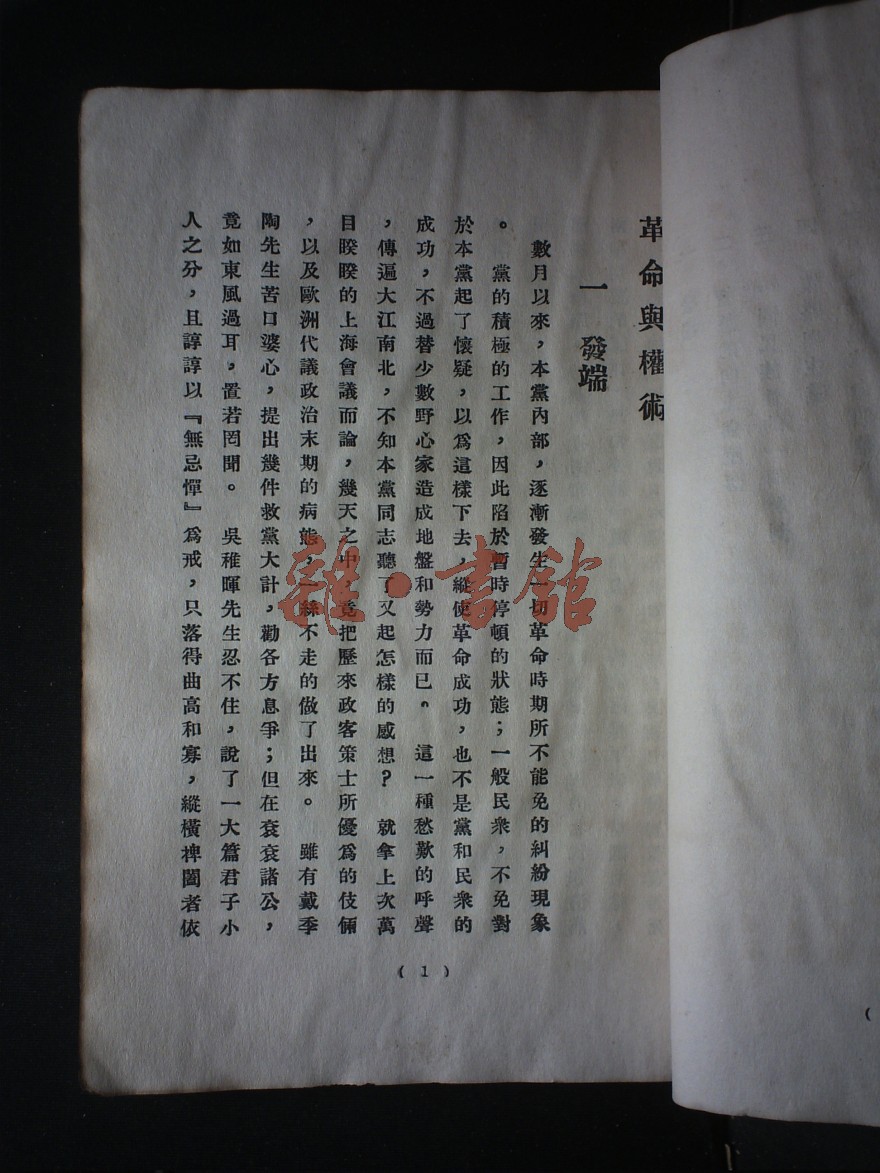 革命與權術
一　發端
數月以來，本黨內部，逐漸發生一切革命時期所不能免的糾紛現象
。　黨的積極的工作，因此陷於暫時停頓的狀態；一般民衆，不免對
於本黨起了懷疑，以爲這樣下去，縱使革命成功，也不是黨和民衆的
成功，不過替少數野心家造成地盤和勢力而已。　這一種愁歎的呼聲
，傳遍大江南北，不知本黨同志聽了又起怎樣的感想？　就拿上次萬
目睽睽的上海會議而論，幾天之中，竟把歷來政客策士所優爲的伎倆
，以及歐洲代議政治末期的病態，一絲不走的做了出來。　雖有戴季
陶先生苦口婆心，提出幾件救黨大計，勸各方息爭；但在袞袞諸公，
竟如東風過耳，置若罔聞。　吳稚暉先生忍不住，說了一大篇君子小
人之分，且諄諄以『無忌憚』爲戒，只落得曲高和寡，縱橫捭闔者依
( 1 )
雜·書館
(